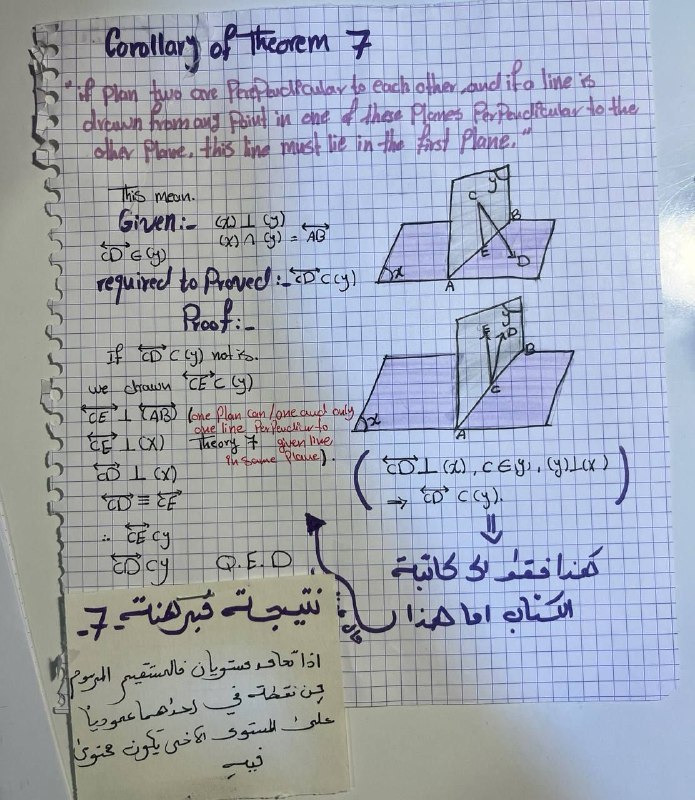 Corollary of Theorem 7
"if plan two are Perpendicular to each other, and if a line is
drawn from any Point in one of these Planes Perpendicular to the
other Plane, this line must lie in the first Plane."
This mean.
Given:- (x) ⊥ (y)
(x) ∩ (y) = AB
CD ∈ (y)
required to Proved:- CD ⊂ (y)
Proof:-
If CD ⊂ (y) not is.
we drawn CE ⊂ (y)
CE ⊥ (AB) (one Plan can / one and only
one line Perpendiculr to
CE ⊥ (X) Theory 7 given line
in same Plane).
CD ⊥ (x)
CD ≡ CE
∴ CE ⊂ y
CD ⊂ y Q.E.D
y
C
B
E
D
x
A
y
E
D
B
C
x
A
(CD ⊥ (x), C ∈ (y), (y) ⊥ (x)
→ CD ⊂ (y).)
⇓
الكتاب اما هذا
نتيجة مبرهنة -7-
اذا تعامد مستويان فالمستقيم المرسوم
من نقطة في احدهما عمودياً
على المستوى الاخر يكون محتوى
فيه